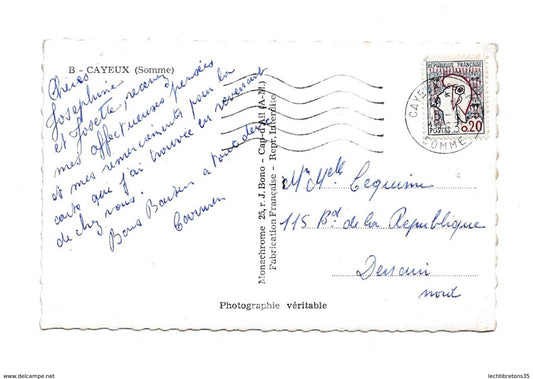 B - CAYEUX (Somme)
Chères
Josephine
et Josette recevez
mes affectueuses pensées
et mes remerciements pour la
carte que j'ai trouvée en revenant
de chez vous.
Bons Baisers a tous deux
Carmen
Monochrome 25, r. J. Bono - Cap-d'Ail (A.-M.)
Fabrication Française - Repr. Interdite
REPUBLIQUE FRANÇAISE
POSTES 0,20
CAYEUX
SOMME
Mr Mme Lequime
115 Bd de la Republique
Denain
nord
Photographie véritable
https://www.delcampe.net
lechtibretons35